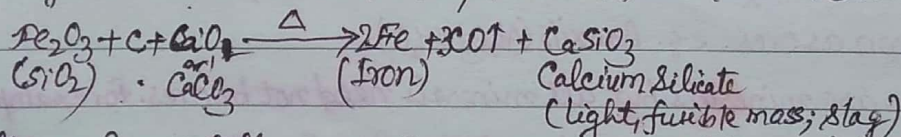 Fe₂O₃ + C + CaO, —Δ→ 2Fe + 3CO↑ + CaSiO₃
(SiO₂) · or CaCO₃ (Iron) Calcium Silicate
(light, fusible mass; slag)